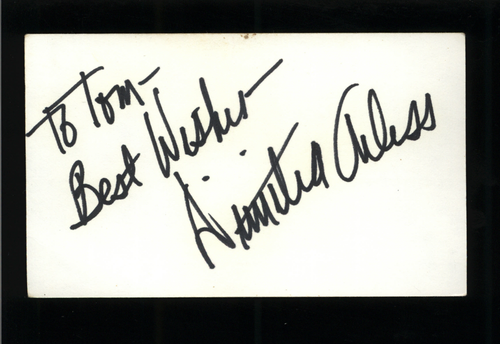 To Tom-
Best Wishes
Dimitra Arliss